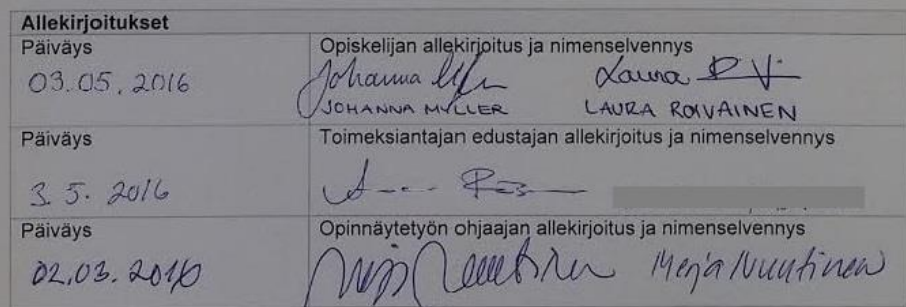 Allekirjoitukset
Päiväys Opiskelijan allekirjoitus ja nimenselvennys
03.05.2016 Johanna Laura
JOHANNA MYLLER LAURA ROIVAINEN
Päiväys Toimeksiantajan edustajan allekirjoitus ja nimenselvennys
3.5.2016
Päiväys Opinnäytetyön ohjaajan allekirjoitus ja nimenselvennys
02.03.2016 Merja Nuutinen Merja Nuutinen